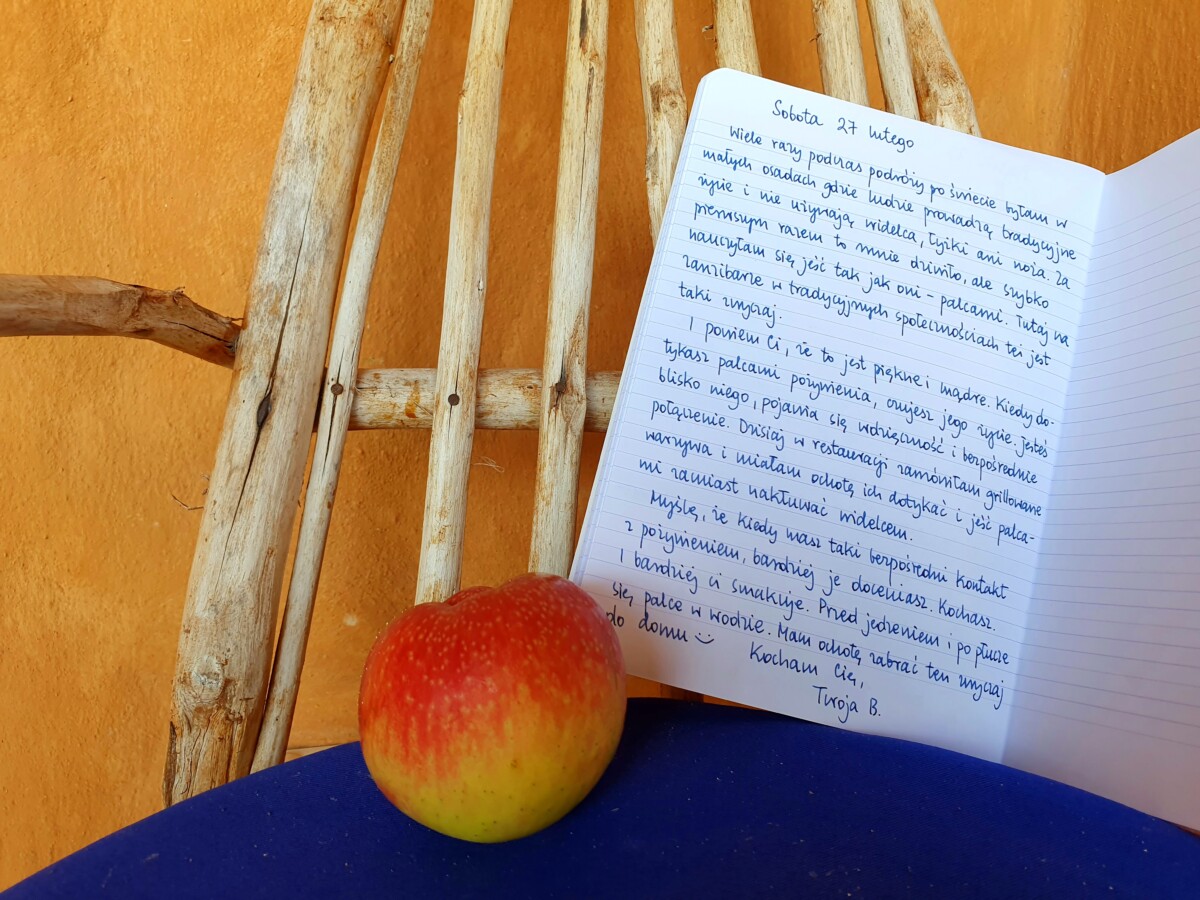 Sobota 27 lutego
Wiele razy podczas podróży po świecie byłam w
małych osadach gdzie ludzie prowadzą tradycyjne
życie i nie używają widelca, łyżki ani noża. Za
pierwszym razem to mnie dziwiło, ale szybko
nauczyłam się jeść tak jak oni - palcami. Tutaj na
Zanzibarze w tradycyjnych społecznościach też jest
taki zwyczaj.
I powiem Ci, że to jest piękne i mądre. Kiedy do-
tykasz palcami pożywienia, czujesz jego życie. Jesteś
blisko niego, pojawia się wdzięczność i bezpośrednie
połączenie. Dzisiaj w restauracji zamówiłam grillowane
warzywa i miałam ochotę ich dotykać i jeść palca-
mi zamiast nakłuwać widelcem.
Myślę, że kiedy masz taki bezpośredni kontakt
z pożywieniem, bardziej je doceniasz. Kochasz.
I bardziej ci smakuje. Przed jedzeniem i po płucze
się palce w wodzie. Mam ochotę zabrać ten zwyczaj
do domu :)
Kocham Cię,
Twoja B.